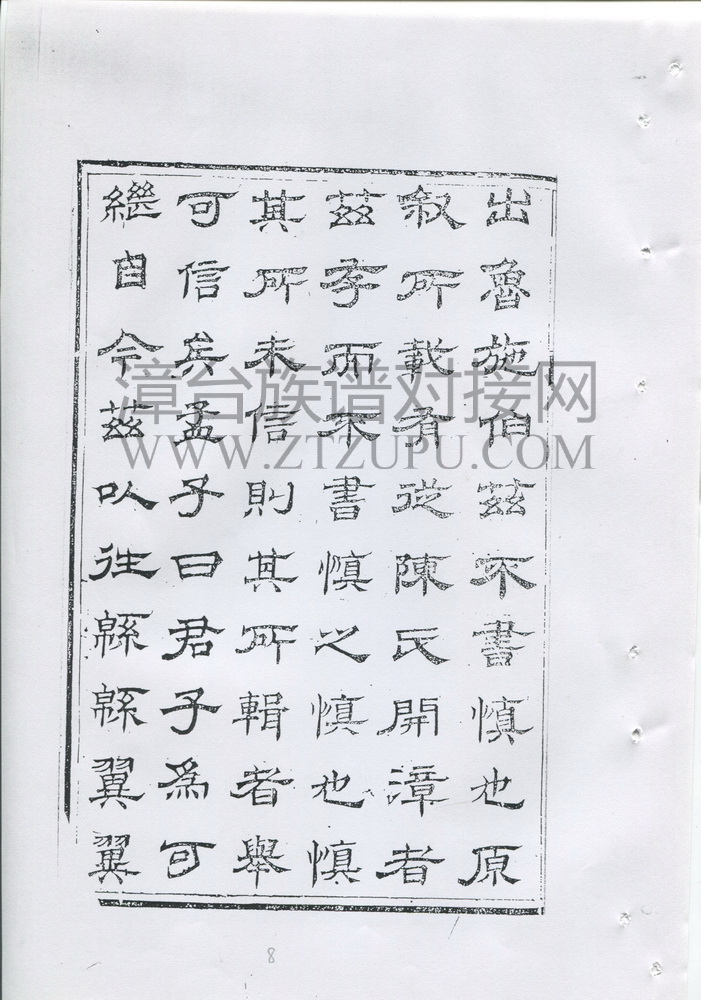 出魯施伯茲不書慎也原
叙所載有從陳氏開漳者
茲存而不書慎之慎也慎
其所未信則其所輯者舉
可信矣孟子曰君子為可
繼自今茲以往緜緜翼翼
漳台族谱对接网
WWW.ZTZUPU.COM
8